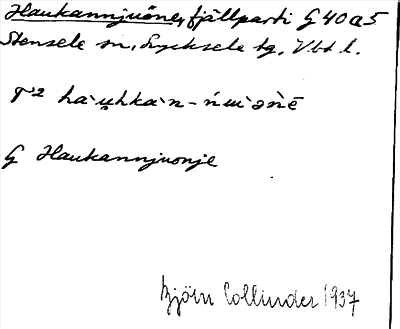 Haukannjuöne, fjällparti G 40 a5
Stensele sn, Lycksele tg, Vbt l.
G Haukannjuonje
Björn Collinder 1937